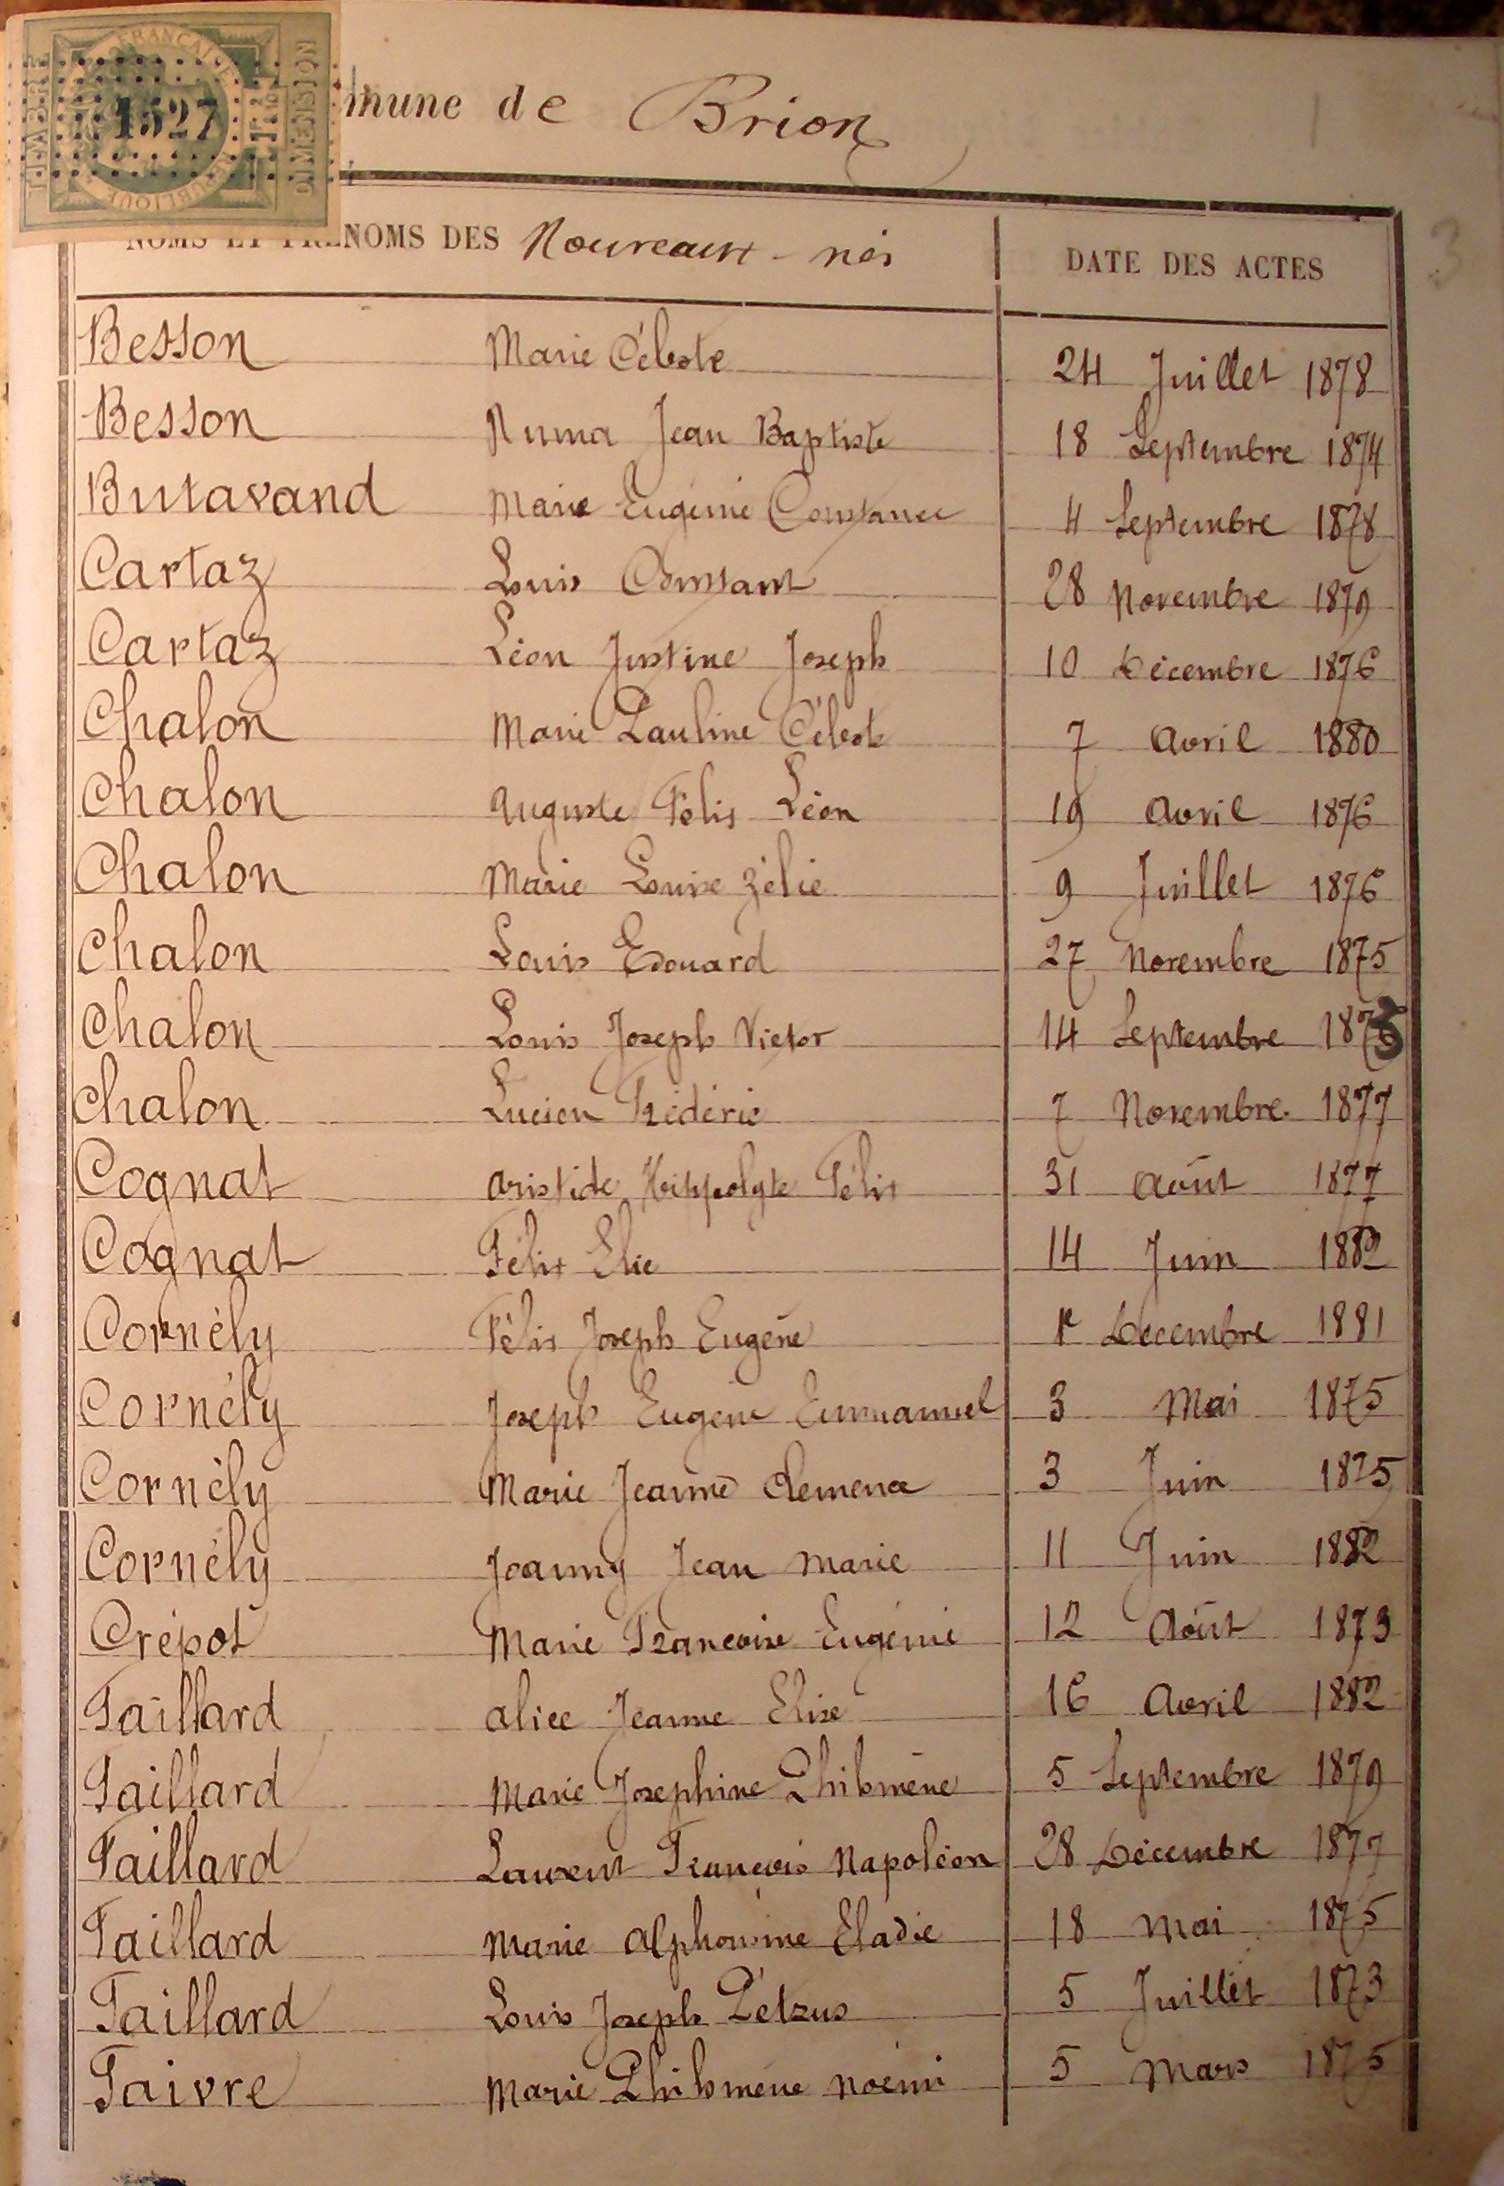 TIMBRE
FRANÇAISE
1527
RÉPUBLIQUE
DIMENSION
mune de Brion
3
NOMS ET PRÉNOMS DES Nouveaux-nés DATE DES ACTES
Besson Marie Céleste 24 Juillet 1878
Besson Numa Jean Baptiste 18 Septembre 1874
Butavand Marie Eugénie Constance 4 Septembre 1878
Cartaz Louis Constant 28 Novembre 1879
Cartaz Léon Justine Joseph 10 Décembre 1876
Chalon Marie Pauline Céleste 7 Avril 1880
Chalon Auguste Félix Léon 19 Avril 1876
Chalon Marie Louise Zélie 9 Juillet 1876
Chalon Louis Edouard 27 Novembre 1875
Chalon Louis Joseph Victor 14 Septembre 1875
Chalon Lucien Frédéric 7 Novembre 1877
Cognat Aristide Hippolyte Félix 31 Août 1877
Cognat Félix Elie 14 Juin
Cornély Félix Joseph Eugène 1r Décembre 1881
Cornély Joseph Eugène Emmanuel 3 Mai 1875
Cornély Marie Jeanne Clemence 3 Juin 1875
Cornély Joanny Jean Marie 11 Juin 1882
Crépot Marie Francoise Eugénie 12 Août 1873
Faillard Alice Jeanne Elise 16 Avril 1882
Faillard Marie Josephine Philomène 5 Septembre 1879
Faillard Laurent François Napoléon 28 Décembre 1877
Faillard Marie Alphonsine Eladie 18 Mai 1875
Faillard Louis Joseph Pétrus 5 Juillet 1873
Faivre Marie Philomène Noémi 5 Mars 1875